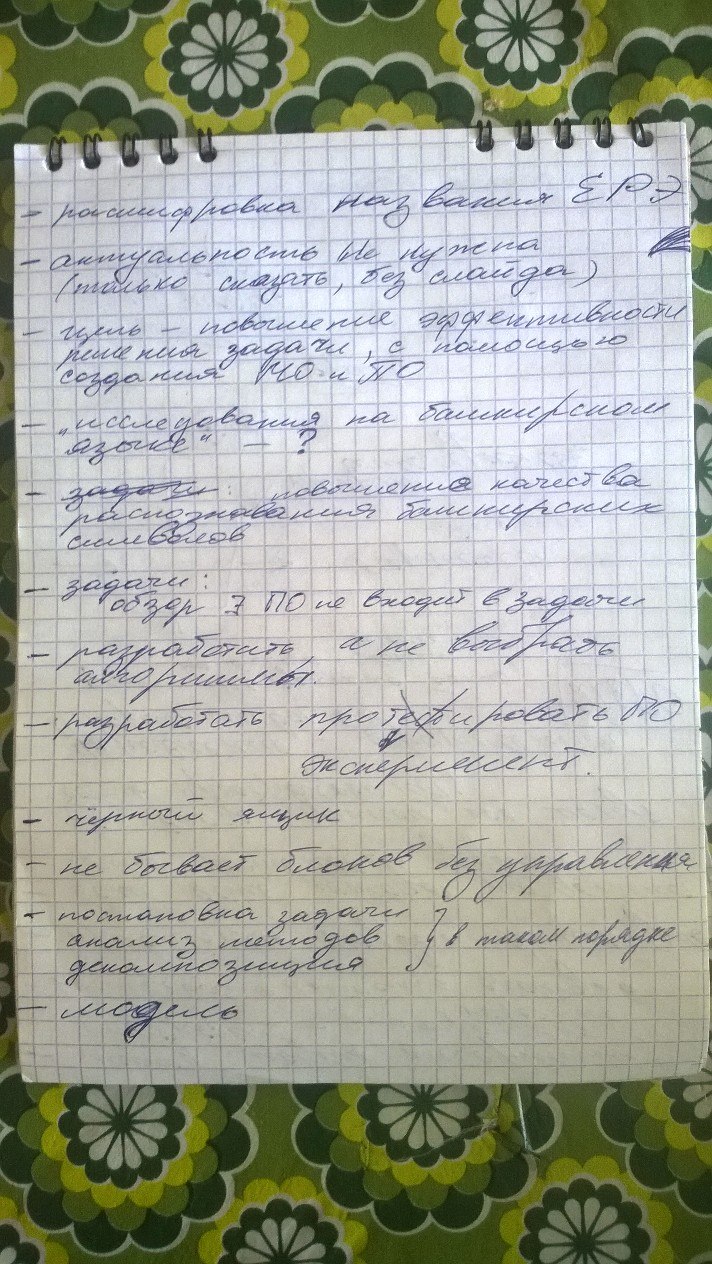 - расшифровка названия ЕРЭ
- актуальность не нужна
(только сказать, без слайда)
- цель – повышение эффективности
решения задачи, с помощью
создания МО и ПО
- „исследования на башкирском
языке“ – ?
- задачи: повышение качества
распознавания башкирских
символов
- задачи:
обзор ПО не входит в задачи
- разработать, а не выбрать
алгоритмы.
- разработать протестировать ПО
эксперимент.
- чёрный ящик
- не бывает блоков без управления
- постановка задачи
анализ методов } в таком порядке
декомпозиция
- модель